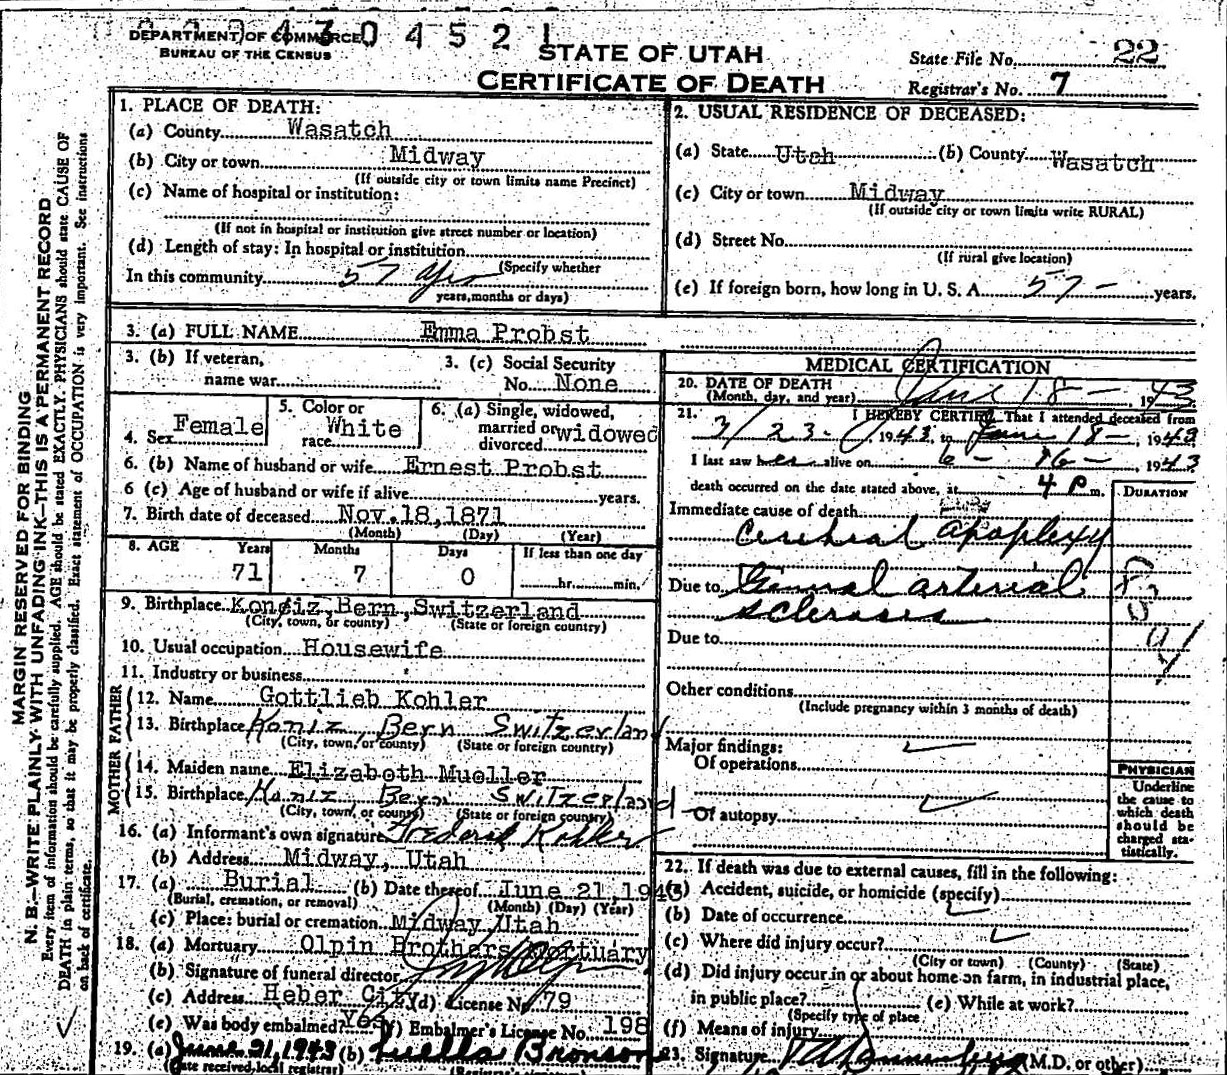 DEPARTMENT OF COMMERCE
BUREAU OF THE CENSUS
4 3 0 4 5 2 1
STATE OF UTAH
CERTIFICATE OF DEATH
State File No. 22
Registrar's No. 7
MARGIN RESERVED FOR BINDING
N. B.—WRITE PLAINLY WITH UNFADING INK—THIS IS A PERMANENT RECORD
Every item of information should be carefully supplied. AGE should be stated EXACTLY. PHYSICIANS should state CAUSE OF
DEATH in plain terms, so that it may be properly classified. Exact statement of OCCUPATION is very important. See instructions
on back of certificate.
1. PLACE OF DEATH:
(a) County Wasatch
(b) City or town Midway
(If outside city or town limits name Precinct)
(c) Name of hospital or institution:
(If not in hospital or institution give street number or location)
(d) Length of stay: In hospital or institution
(Specify whether
In this community 57 yrs
years, months or days)
2. USUAL RESIDENCE OF DECEASED:
(a) State Utah (b) County Wasatch
(c) City or town Midway
(If outside city or town limits write RURAL)
(d) Street No.
(If rural give location)
(e) If foreign born, how long in U. S. A. 57 - years.
3. (a) FULL NAME Emma Probst
3. (b) If veteran,
name war
3. (c) Social Security
No. None
4. Sex Female
5. Color or
race White
6. (a) Single, widowed,
married or
divorced widowed
6. (b) Name of husband or wife Ernest Probst
6 (c) Age of husband or wife if alive years.
7. Birth date of deceased Nov.18,1871
(Month) (Day) (Year)
8. AGE Years Months Days If less than one day
71 7 0 hr. min.
9. Birthplace Koniz, Bern, Switzerland
(City, town, or county) (State or foreign country)
10. Usual occupation Housewife
11. Industry or business
FATHER
12. Name Gottlieb Kohler
13. Birthplace Koniz Bern Switzerland
(City, town, or county) (State or foreign country)
MOTHER
14. Maiden name Elizabeth Mueller
15. Birthplace Koniz Bern Switzerland
(City, town, or county) (State or foreign country)
16. (a) Informant's own signature Frederick Kohler
(b) Address Midway, Utah
17. (a) Burial (b) Date thereof June 21,1943
(Burial, cremation, or removal) (Month) (Day) (Year)
(c) Place: burial or cremation Midway Utah
18. (a) Mortuary Olpin Brothers Mortuary
(b) Signature of funeral director
(c) Address Heber City (d) License No 79
(e) Was body embalmed? Yes (f) Embalmer's License No. 198
19. (a) June 21, 1943 (b) Luella Bronson
(Date received local registrar)
MEDICAL CERTIFICATION
20. DATE OF DEATH
(Month, day, and year) June 18 - , 1943
21. I HEREBY CERTIFY That I attended deceased from
3/23 - 1943, to June 18 - , 1943
I last saw her alive on 6 - 16 - , 1943
death occurred on the date stated above, at 4 P m.
DURATION
Immediate cause of death
Cerebral apoplexy
Due to General arterial
sclerosis
Due to
Other conditions
(Include pregnancy within 3 months of death)
Major findings:
Of operations
Of autopsy
PHYSICIAN
Underline
the cause to
which death
should be
charged sta-
tistically.
22. If death was due to external causes, fill in the following:
(a) Accident, suicide, or homicide (specify)
(b) Date of occurrence
(c) Where did injury occur?
(City or town) (County) (State)
(d) Did injury occur in or about home on farm, in industrial place,
in public place? (e) While at work?
(Specify type of place
(f) Means of injury
23. Signature (M.D. or other)